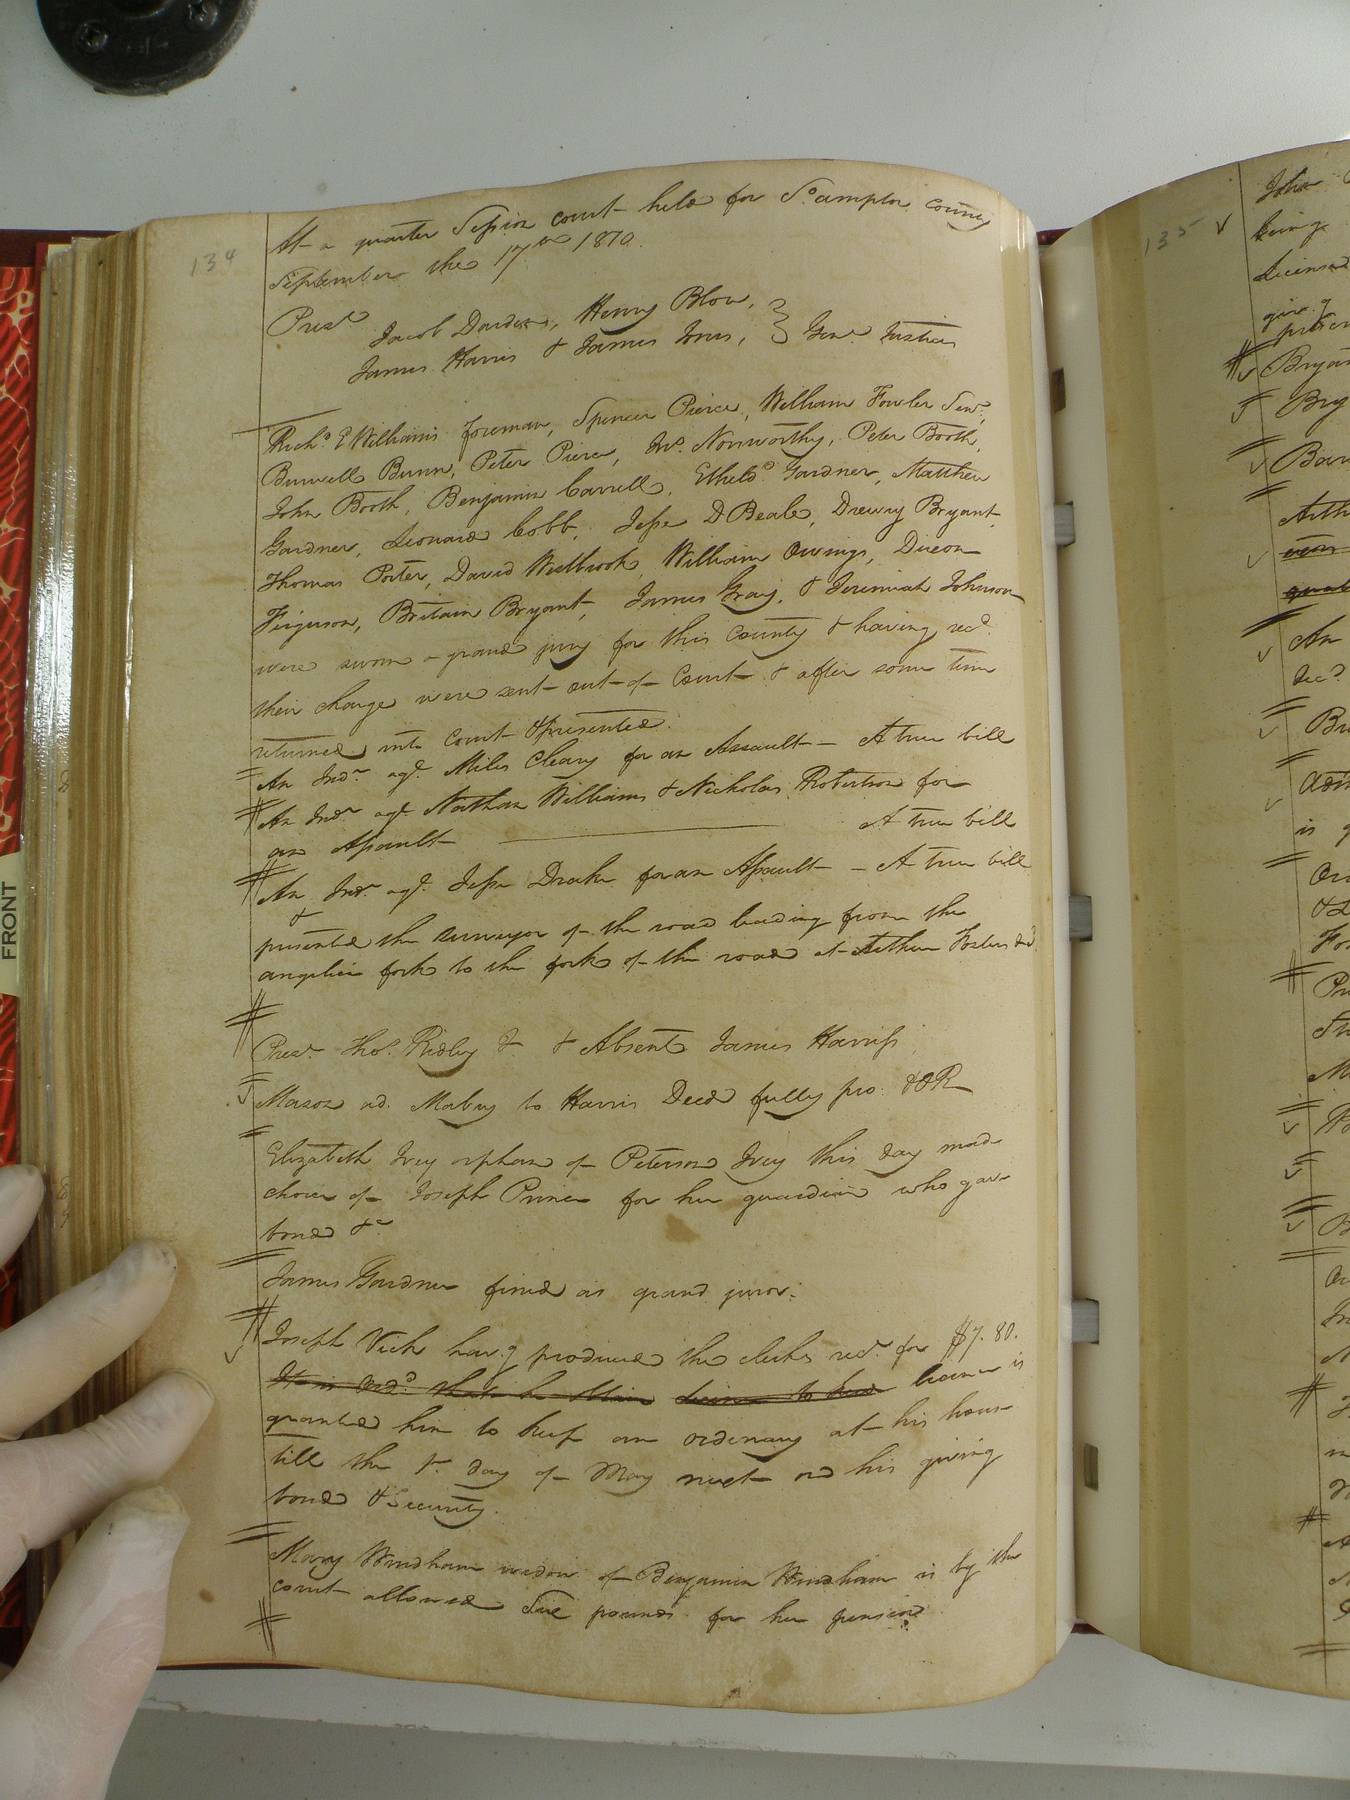 134
At a quarter Session court held for So.ampton County
September the 17th 1810.
Prest
Jacob Darden, Henry Blow,
James Harris & James Jones, } Gen. Justices
Richd. E Williams foreman, Spencer Pierce, William Fowler Senr.,
Burwell Bunn, Peter Pierce, Jno. Norsworthy, Peter Booth,
John Booth, Benjamin Carrell, Etheld. Gardner, Matthew
Gardner, Leonard Cobb, Jesse D Beale, Drewry Bryant,
Thomas Porter, David Westbrook, William Owings, Dixon
Ferguson, Britain Bryant, James Gray, & Jeremiah Johnson
were sworn a grand jury for this County & having recd.
their charge were sent out of Court & after some time
returned into Court & presented.
An Indt. agt. Miles Cleary for an Assault — A true bill
An Indt. agt. Nathan Williams & Nicholas Robertson for
an Assault — A true bill
An Indt. agt. Jesse Drake for an Assault — A true bill
&
presented the surveyor of the road leading from the
angelica fork to the fork of the road at Arthur Fosters
Prest. Thos. Ridley & Absent James Harriss
Mason ad. Mabry to Harris Deed fully pro. & OR
Elizabeth Ivey orphan of Peterson Ivey this day made
choice of Joseph Prince for her guardian who gave
bond &c
James Gardner fined as grand juror.
Joseph Vick havg. produced the clerks rect. for $7.80.
It is Ord. that he obtain license to keep license is
granted him to keep an ordinary at his house
till the 1st. day of May next on his giving
bond & Security.
Mary Windham widow of Benjamin Windham is by the
court allowed Five pounds for her pension
135
John
being
license
give
presen
Bryan
Bry
Bar
Arth
An
decd.
Br
adm
is g